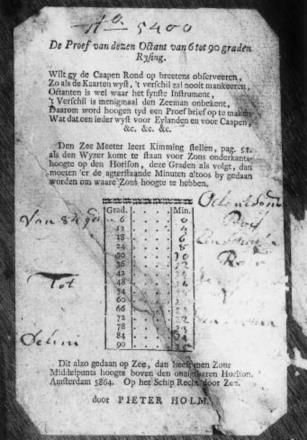 No. 5400
De Proef van dezen Octant van 6 tot 90 graden
Rysing.
Wilt gy de Caapen Rond op breetens observeeren,
Zo als de Kaarten wyst, 't verschil zal nooit mankeeren,
Octanten is wel waar het fynste Instrument,
't Verschil is menigmaal den Zeeman onbekent,
Daarom word hoogen tyd een Proef brief op te maken
Wat dat een ieder wyst voor Eylanden en voor Caapen,
&c. &c. &c.
Den Zee Meeter leert Kimming stellen, pag. 51.
als den Wyzer komt te staan voor Zons onderkants
hoogte op den Horison, deze Graden als volgt, dan
moeten 'er de agterstaande Minuten altoos by gedaan
worden om waare Zons hoogte te hebben.
Grad. Min.
6
12
18
24
30
36
42
48
54
60
66
72
78
84
90
Tot
Dit alzo gedaan op Zee, dan heeft men Zons
Middelpunts hoogte boven den onzigtbaren Horison.
Amsterdam 5864. Op het Schip Recht door Zee.
door PIETER HOLM.